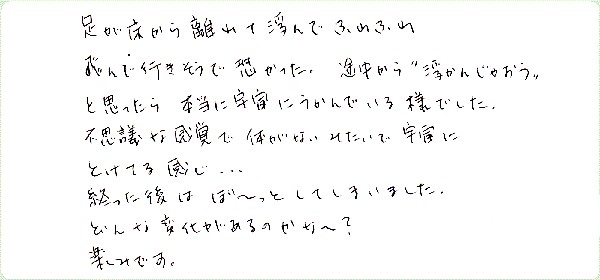 足が床から離れて浮んでふわふわ
飛んで行きそうで恐かった。途中から“浮かんじゃおう”
と思ったら本当に宇宙にうかんでいる様でした。
不思議な感覚で体がないみたいで宇宙に
とけてる感じ...
終った後はぼ〜っとしてしまいました。
どんな変化があるのかな〜?
楽しみです。